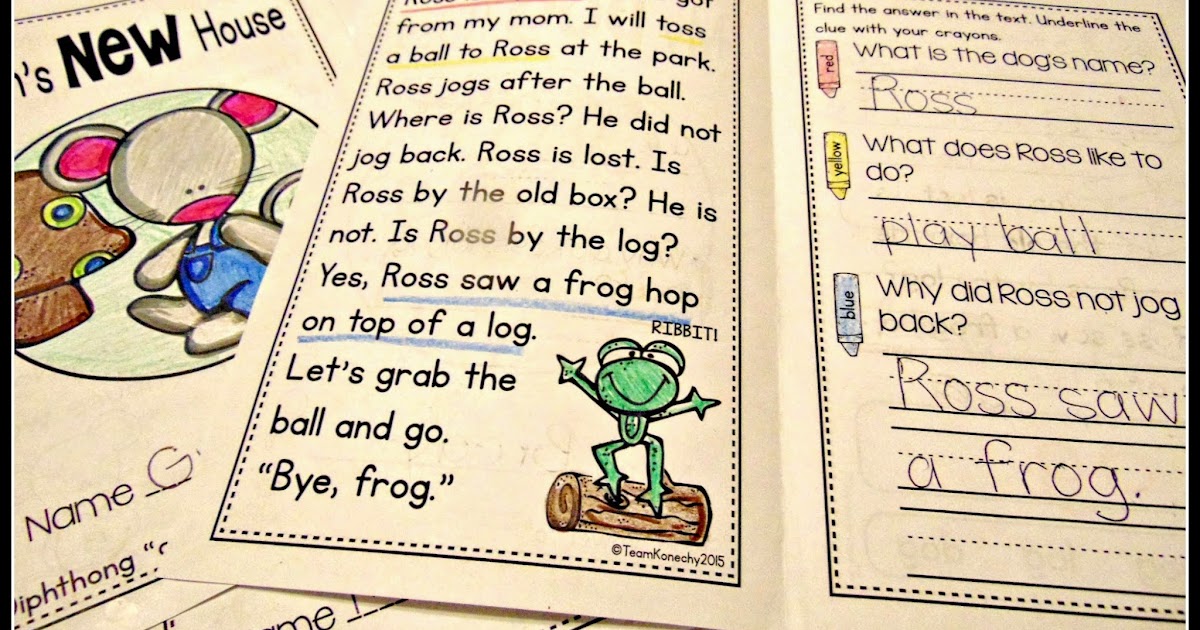 New House
Name G
iphthong
from my mom. I will toss
a ball to Ross at the park.
Ross jogs after the ball.
Where is Ross? He did not
jog back. Ross is lost. Is
Ross by the old box? He is
not. Is Ross by the log?
Yes, Ross saw a frog hop
on top of a log.
RIBBIT!
Let's grab the
ball and go.
"Bye, frog."
©TeamKonechy2015
Find the answer in the text. Underline the
clue with your crayons.
red
What is the dog's name?
Ross
yellow
What does Ross like to
do?
play ball
blue
Why did Ross not jog
back?
Ross saw
a frog.